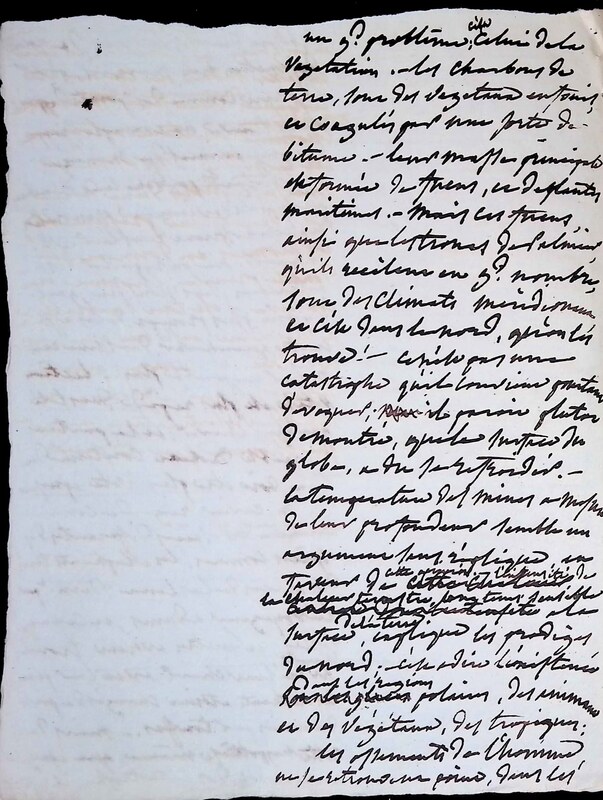 un gd problême, c'est celui de la
végétation. - les charbons de
terre, sont des végétaux enfouis,
et coagulés par une sorte de
bitume. - leur masse principale
est formée de fucus, et de plantes
maritimes. - mais ces fucus
ainsi que les troncs de Palmier
qu'ils recèlent en gd nombre,
sont des climats méridionaux
et c'est dans le nord, qu'on les
trouve! - ce n'est pas une
catastrophe qu'il convient pourtant
d'évoquer. il paroit plutot
démontré, que la surface du
globe, a du se refroidir. -
la température des mines a mesure
de leur profondeur semble un
argument sans réplique en
faveur de cette opinion. - l'intensité de
la chaleur terrestre, longtems sensible
a la
surface, de la terre explique les prodiges
du nord. - c'est a dire l'existence
dans les régions polaires, des animaux
et des végétaux, des tropiques.
les ossements de l'homme
ne se retrouvent point, dans les